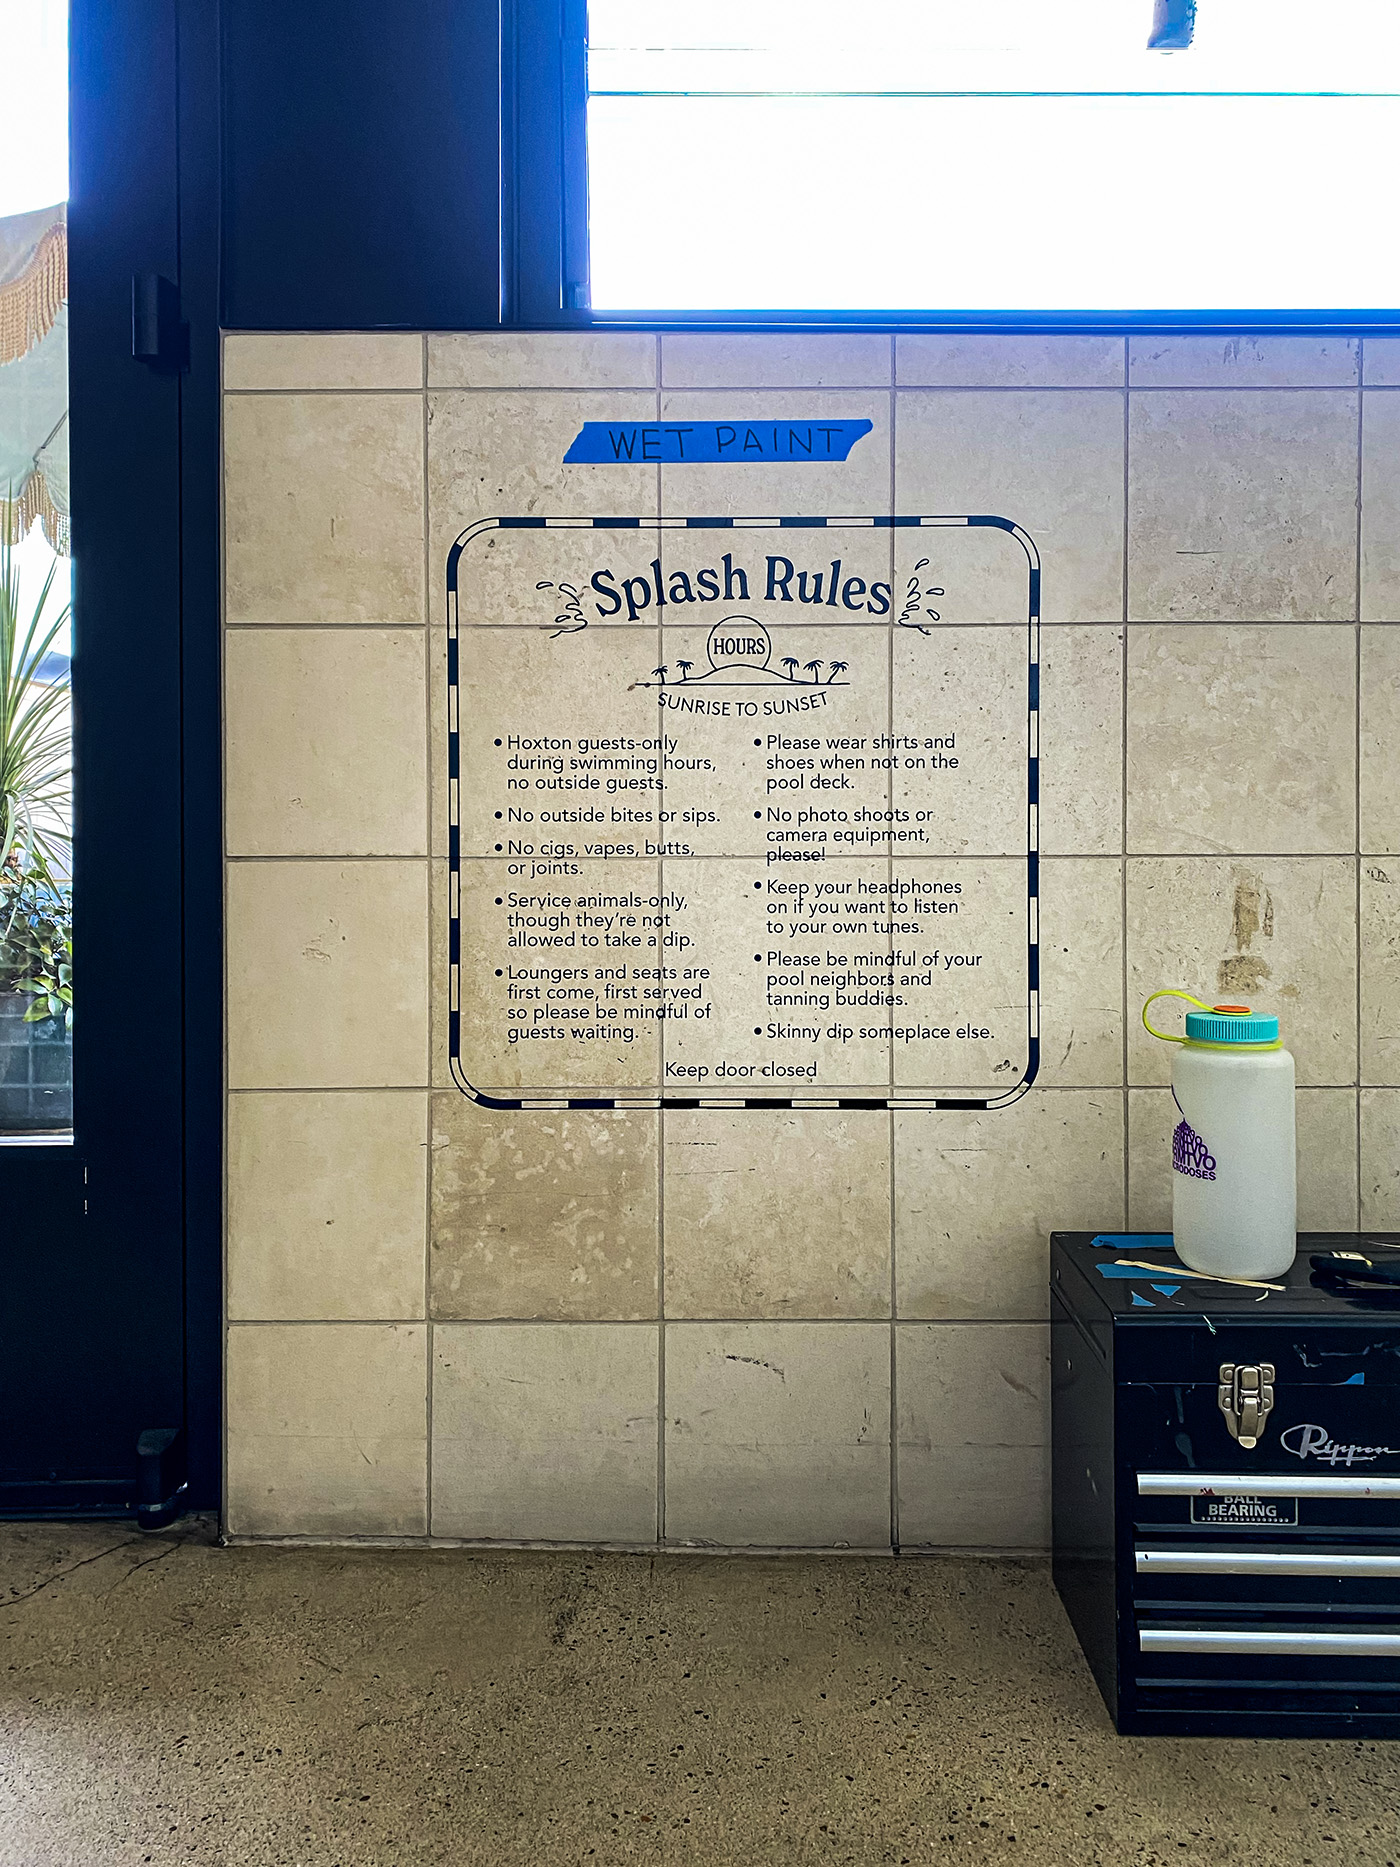 WET PAINT
Splash Rules
HOURS
SUNRISE TO SUNSET
• Hoxton guests-only
during swimming hours,
no outside guests.
• No outside bites or sips.
• No cigs, vapes, butts,
or joints.
• Service animals-only,
though they're not
allowed to take a dip.
• Loungers and seats are
first come, first served
so please be mindful of
guests waiting.
• Please wear shirts and
shoes when not on the
pool deck.
• No photo shoots or
camera equipment,
please!
• Keep your headphones
on if you want to listen
to your own tunes.
• Please be mindful of your
pool neighbors and
tanning buddies.
• Skinny dip someplace else.
Keep door closed
Rippon
BALL
BEARING